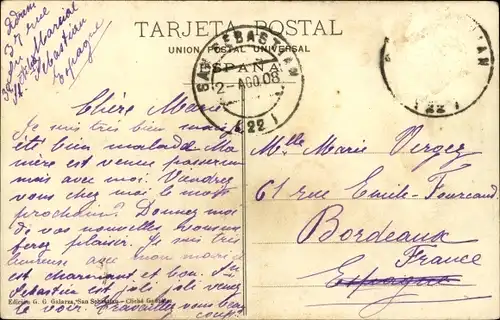 TARJETA POSTAL
UNION POSTAL UNIVERSAL
ESPAÑA
SAN SEBASTIAN
2-AGO.08
22
22
37 rue
San Marcial
St. Sebastian
Espagne
Chère Marie
Je suis très bien mais j'ai
été bien malade Ma
mère est venue passer un
mois avec moi. Viendrez
vous chez moi le mois
prochain? Donnez moi
de vos nouvelles vous me
ferez plaisir. Je suis très
heureuse avec mon mari
est charmant et bon. St
Sebastien est joli joli venez
le voir. Travaillez vous beau
coup?
Mlle Marie Vergez
61 rue Emile-Fourcand
Bordeaux
France
Espagne
Edición G. G. Galarza, San Sebastián.-Cliché